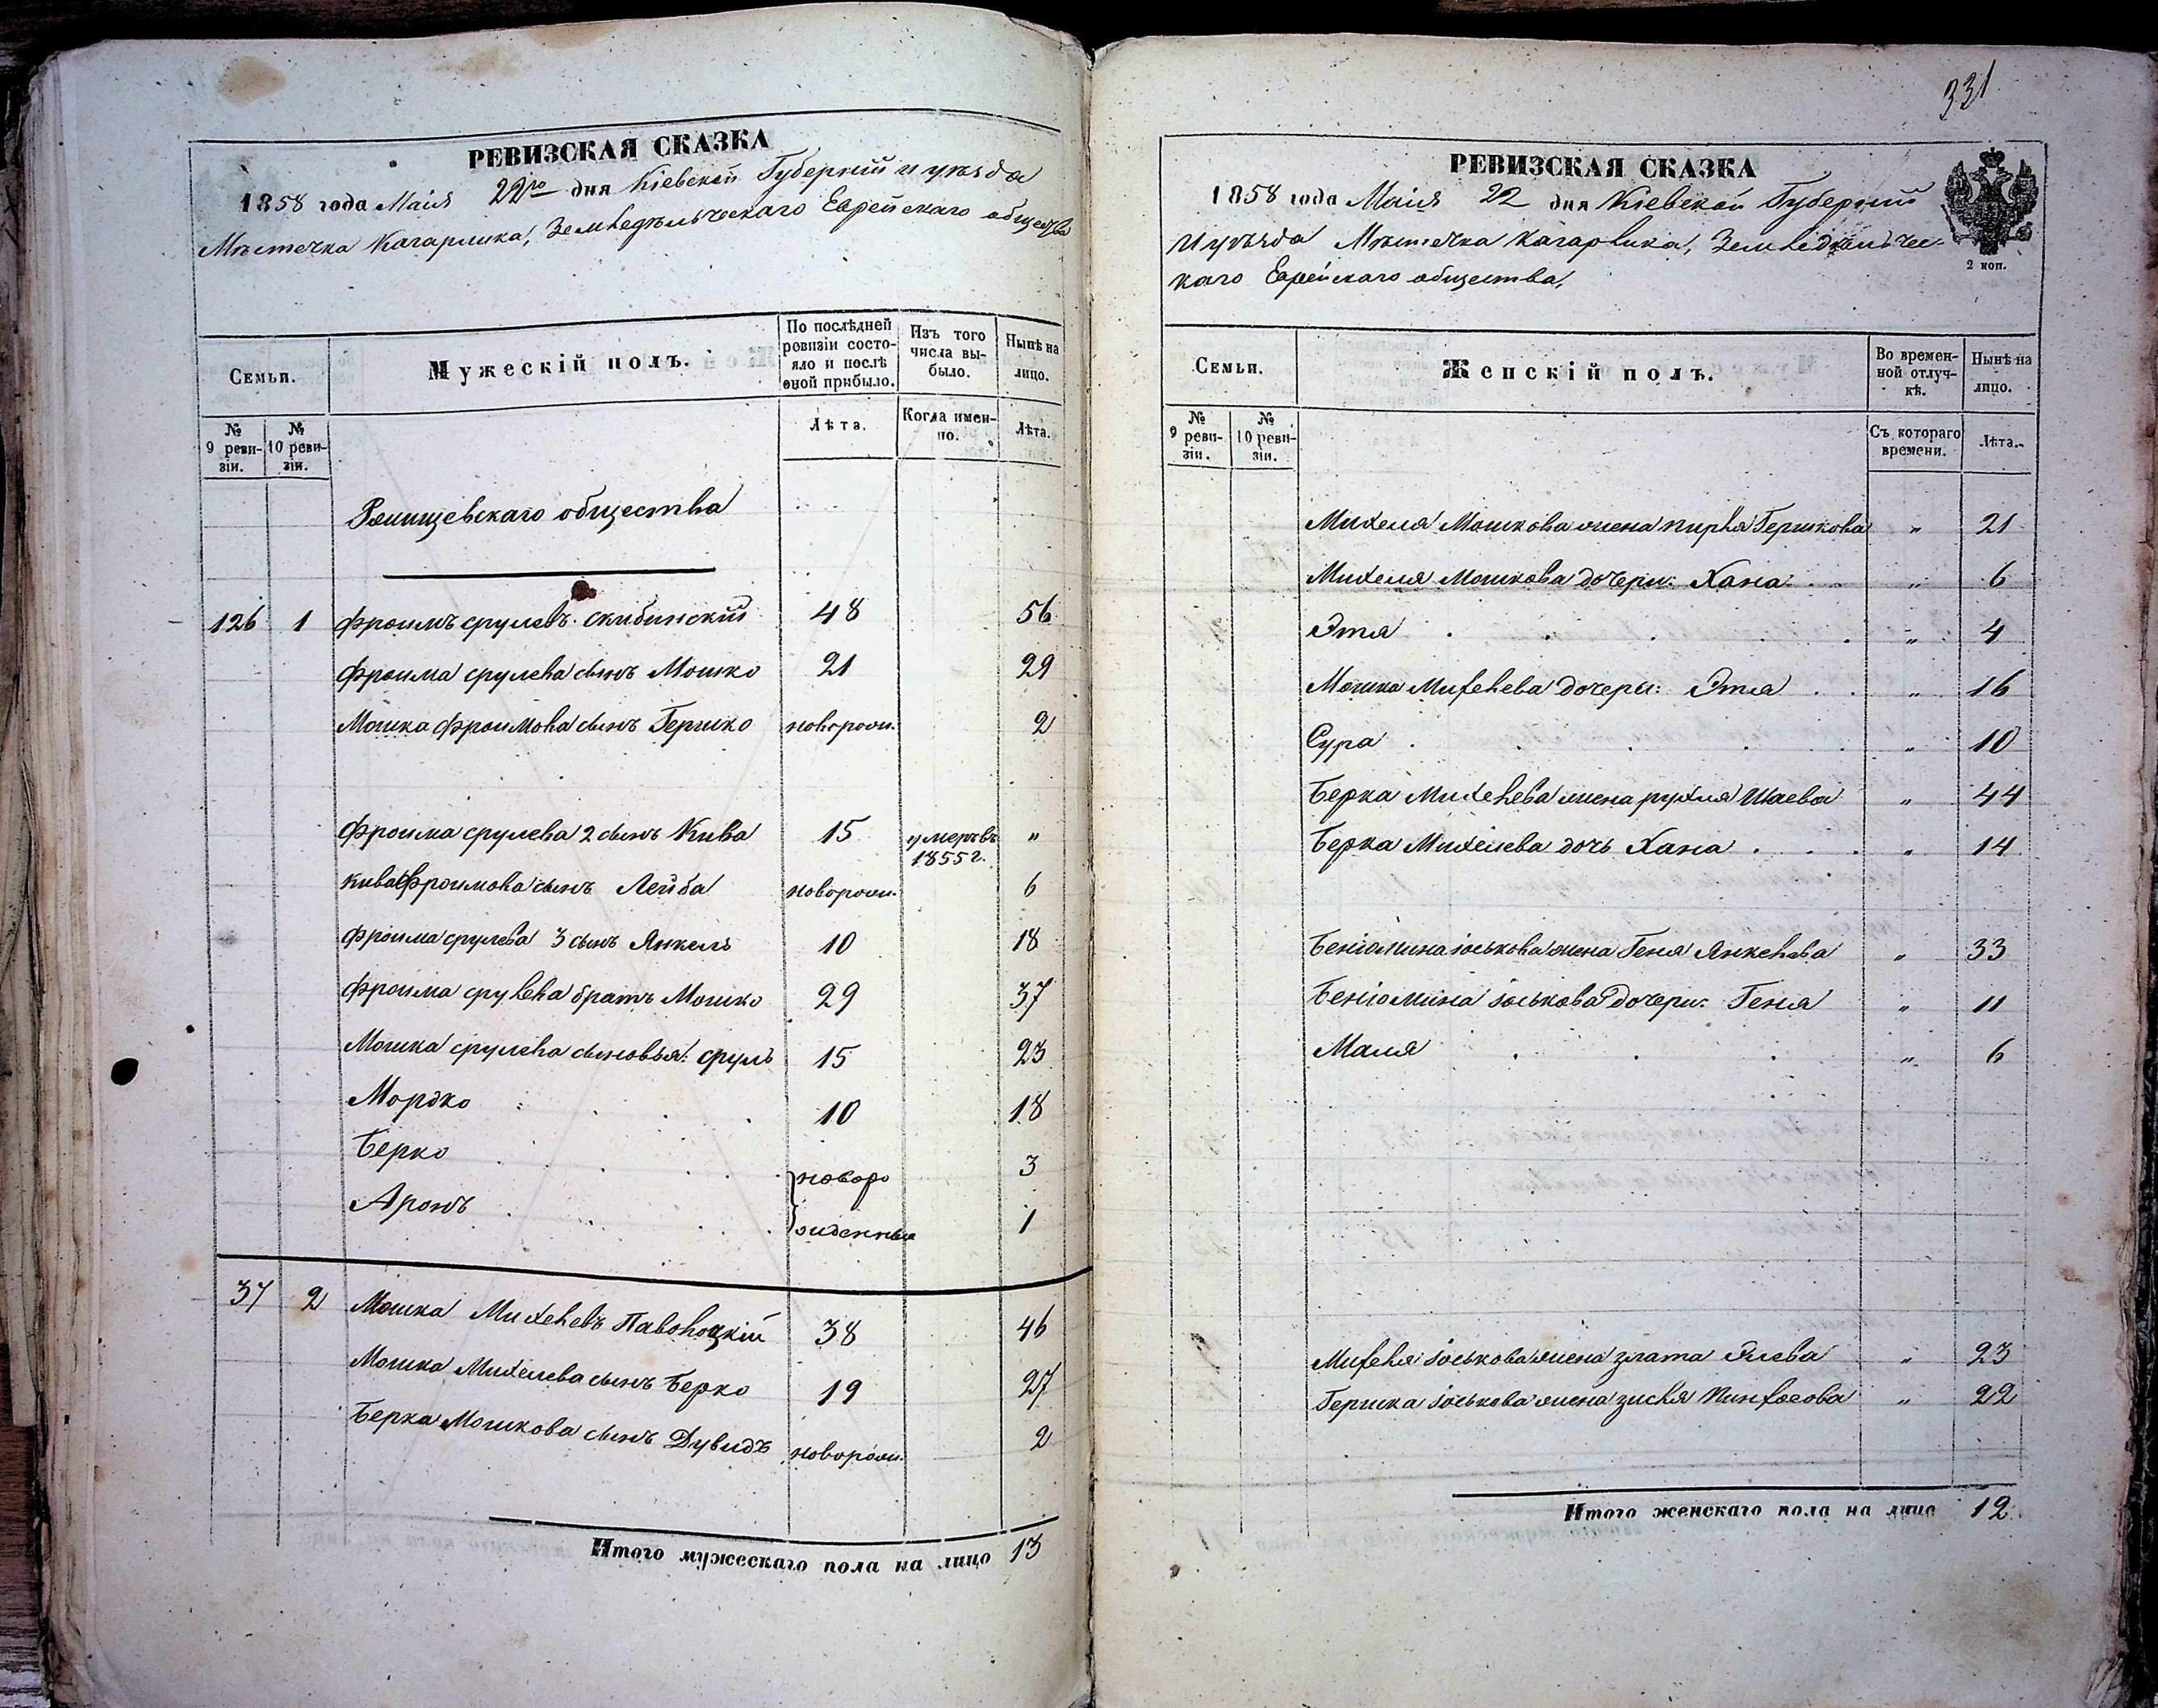 РЕВИЗСКАЯ СКАЗКА
1858 года Маія 22го дня Кіевской Губерніи и уѣзда
Мѣстечка Кагарлика, Земледѣльческаго Еврейскаго общества
Семьи.
Мужескій полъ.
По послѣдней ревизіи состояло и послѣ оной прибыло.
Изъ того числа выбыло.
Нынѣ на лицо.
№ 9 ревизіи.
№ 10 ревизіи.
Лѣта.
Когда именно.
Лѣта.
Рянищевскаго общества
126 1 Фроимъ Срулевъ Скибинскій 48 56
Фроима Срулева сынъ Мошко 21 29
Мошка Фроимова сынъ Гершко новорож. 2
Фроима Срулева 2 сынъ Кива 15 умеръ въ 1855 г. "
Кива Фроимова сынъ Лейба новорож. 6
Фроима Срулева 3 сынъ Янкель 10 18
Фроима Срулева братъ Мошко 29 37
Мошка Срулева сыновья: Сруль 15 23
Мордко 10 18
Берко новоро 3
Аронъ жденныя 1
37 2 Мошка Михелевъ Паволоцкій 38 46
Мошка Михелева сынъ Берко 19 27
Берка Мошкова сынъ Дувидъ новорож. 2
Итого мужескаго пола на лицо 13
331
РЕВИЗСКАЯ СКАЗКА
1858 года Маія 22 дня Кіевской Губерніи
И уѣзда Мѣстечка Кагарлика, Земледѣльчес-
каго Еврейскаго общества,
2 коп.
Семьи.
Женскій полъ.
Во временной отлучкѣ.
Нынѣ на лицо.
№ 9 ревизіи.
№ 10 ревизіи.
Съ котораго времени.
Лѣта.
Михеля Мошкова жена Пирля Гершкова " 21
Михеля Мошкова дочери: Хана " 6
Этя " 4
Мошка Михелева дочери: Этя " 16
Сура " 10
Берка Михелева жена Рухля Шаева " 44
Берка Михелева дочь Хана " 14
Беніомина Іоськова жена Геня Янкелева " 33
Беніомина Іоськова дочери: Геня " 11
Маля " 6
Михеля Іоськова жена Злата Элева " 23
Гершка Іоськова жена Зисля Пинхосова " 22
Итого женскаго пола на лицо 12